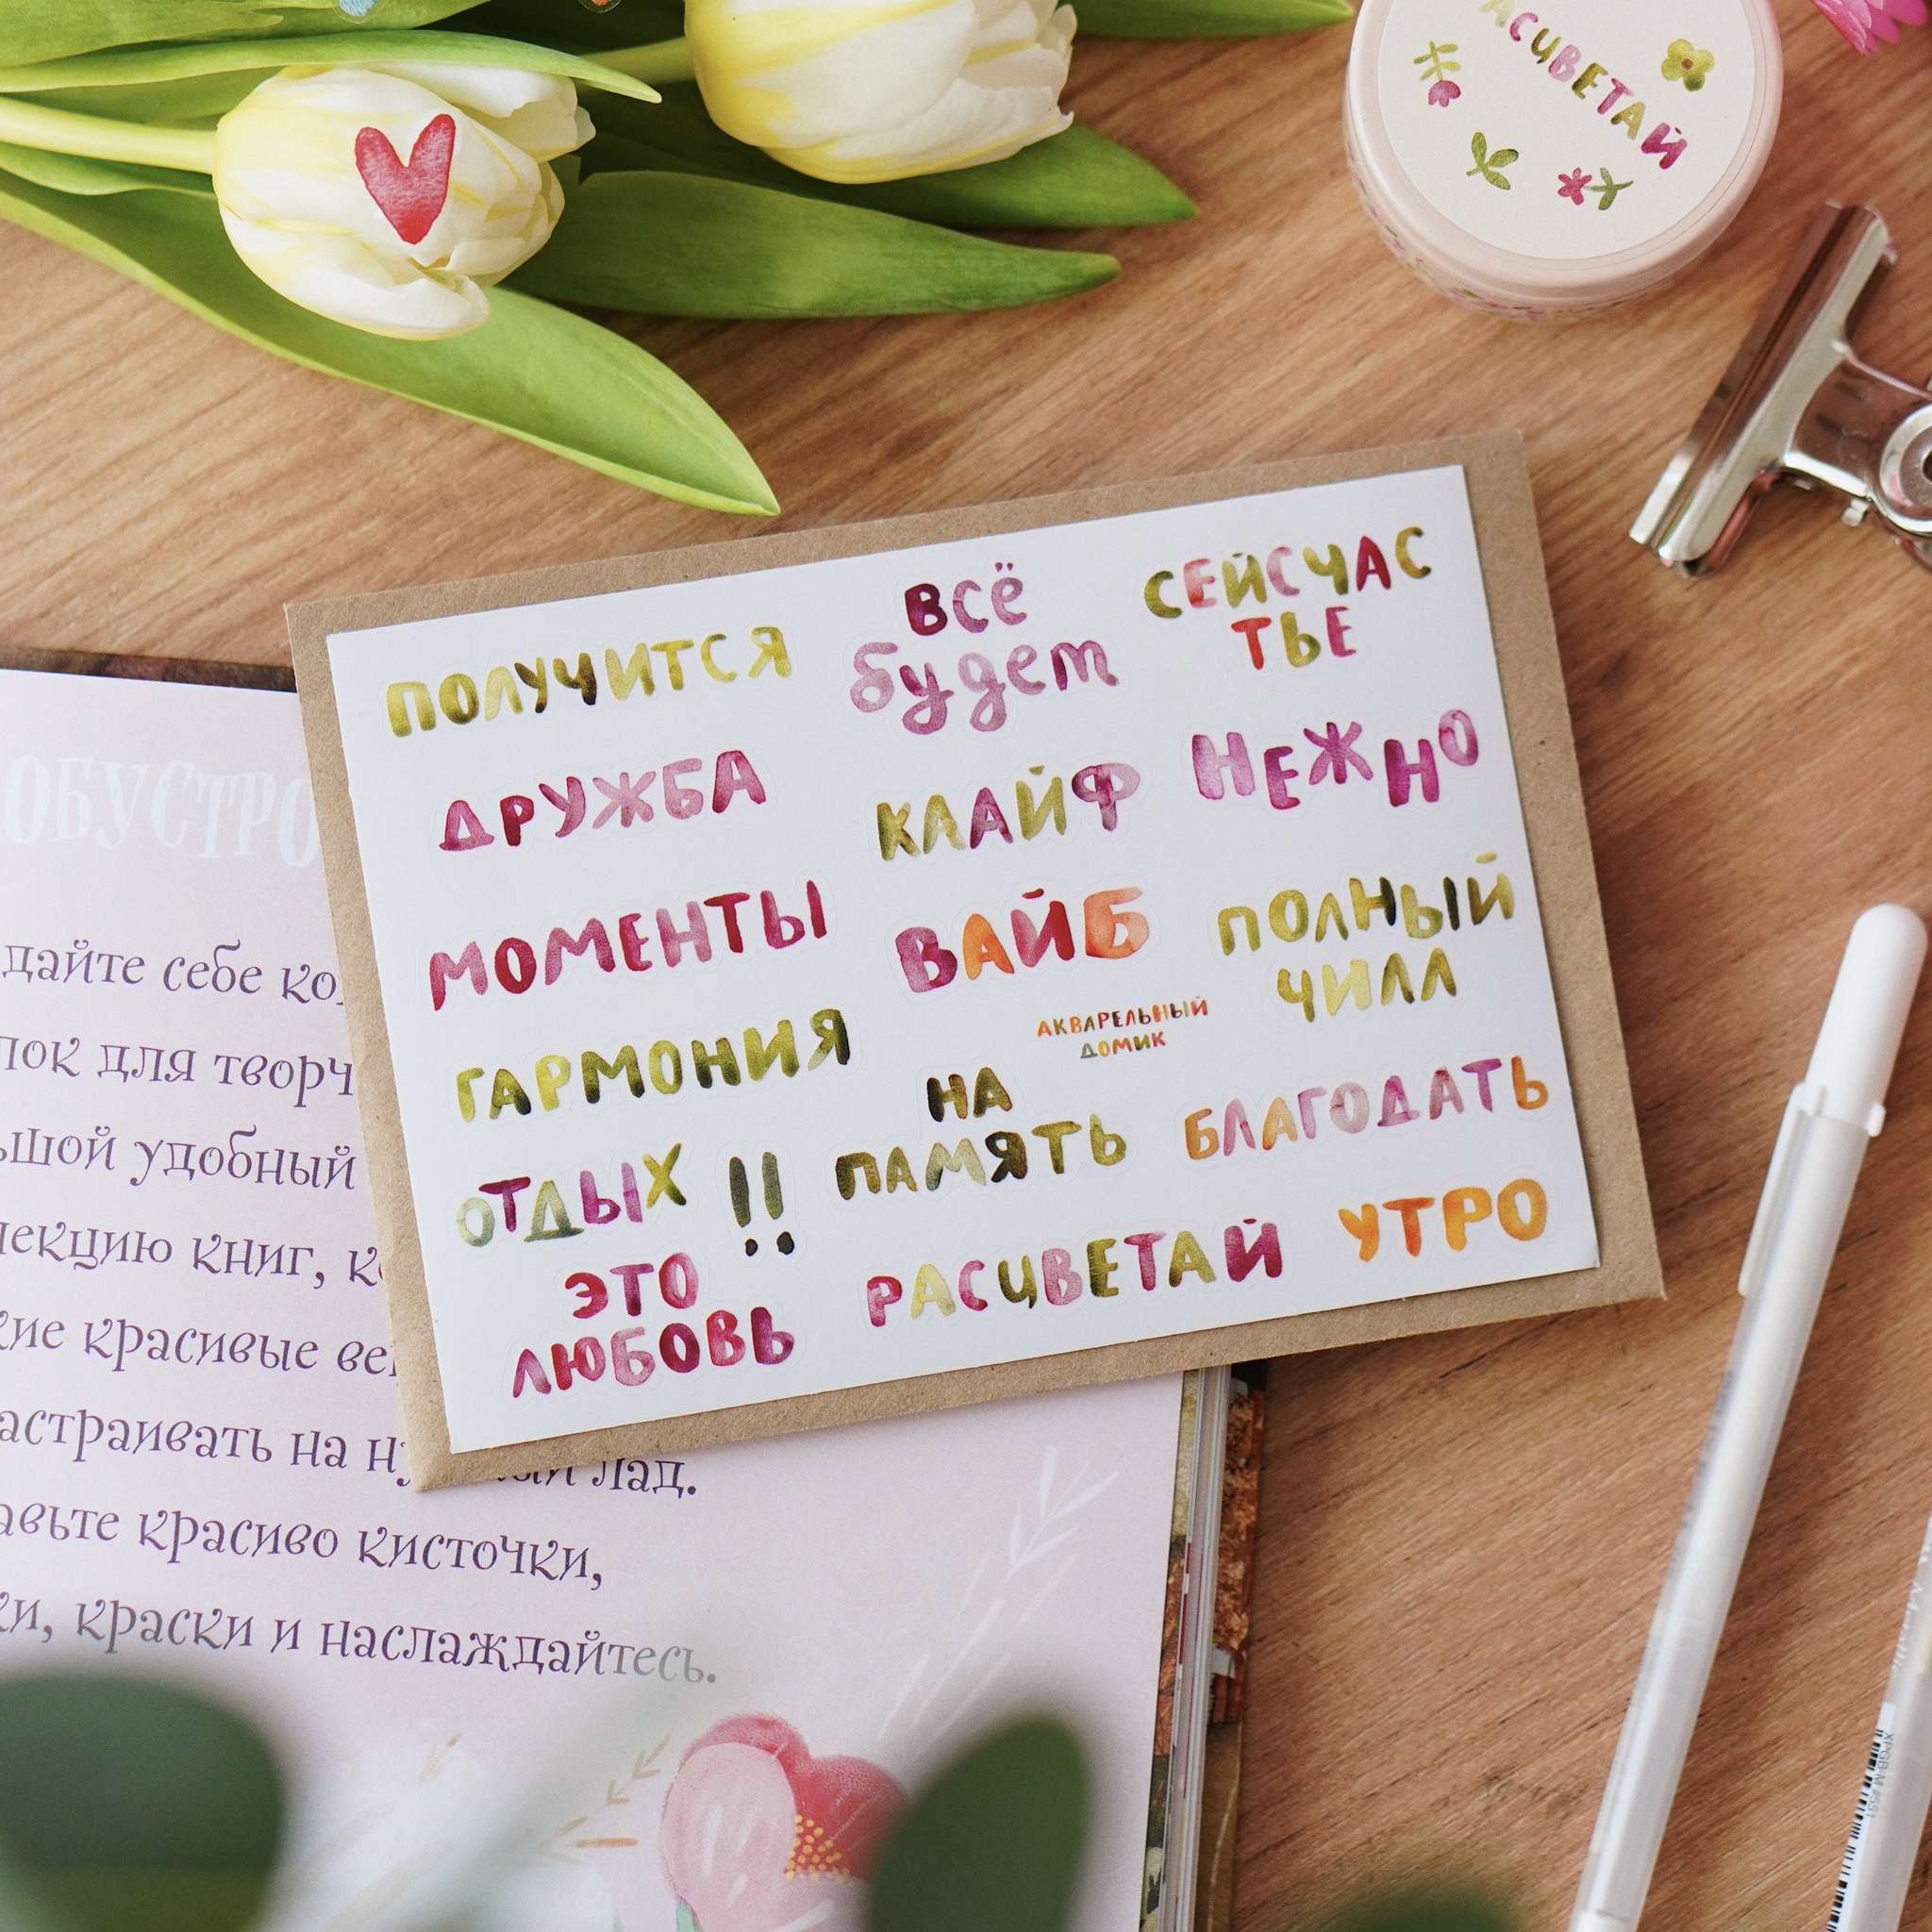 РАСЦВЕТАЙ
ПОЛУЧИТСЯ
ВСЁ
будет
СЕЙСЧАС
ТЬЕ
ДРУЖБА
КЛАЙФ
НЕЖНО
МОМЕНТЫ
ВАЙБ
ПОЛНЫЙ
ЧИЛЛ
ГАРМОНИЯ
АКВАРЕЛЬНЫЙ
ДОМИК
НА
ПАМЯТЬ
БЛАГОДАТЬ
ОТДЫХ
!!
ЭТО
ЛЮБОВЬ
РАСЦВЕТАЙ
УТРО
ОБУСТРО
дайте себе
для творч
удобный
книг,
красивые
астраивать на лад.
красиво кисточки,
краски и наслаждайтесь.